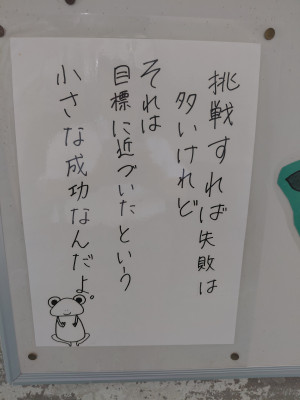 挑戦すれば失敗は
多いけれど
それは
目標に近づいたという
小さな成功なんだよ。